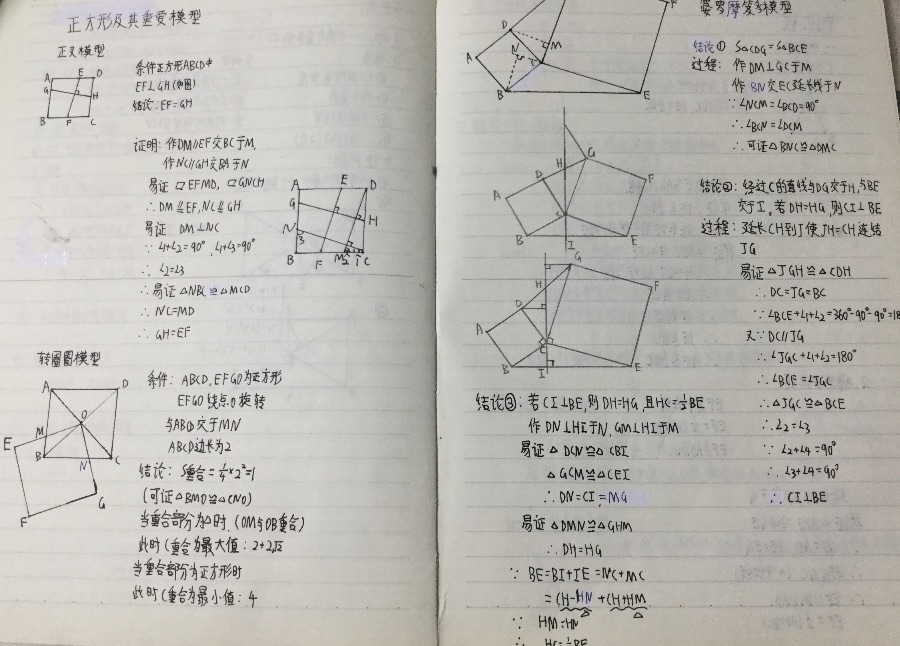 正方形及其重要模型
正叉模型
条件正方形ABCD中
EF⊥GH(如图)
结论:EF=GH
证明:作DM//EF交BC于M,
作NC//GH交BA于N
易证 □EFMD, □GNCH
∴DM≌EF,NC≌GH
易证:DM⊥NC
∵∠1+∠2=90°,∠1+∠3=90°
∴∠2=∠3
∴易证△NBC≌△MCD
∴NC=MD
∴GH=EF
转圈圈模型
条件: ABCD,EFGO为正方形
EFGO绕点O旋转
与ABCD交于MN
ABCD边长为2
结论: S重合=¼×2²=1
(可证△BMO≌△CNO)
当重合部分为△时,(OM与OB重合)
此时C重合为最大值:2+2√2
当重合部分为正方形时
此时C重合为最小值:4
婆罗摩笈多模型
结论① S△CDG=S△BCE
过程: 作DM⊥GC于M
作BN交EC延长线于N
∵∠NCM=∠BCD=90°
∴∠BCN=∠DCM
∴可证△BNC≌△DMC
结论②:经过C的直线与DG交于H,与BE
交于I。若DH=HG,则CI⊥BE
过程:延长CH到J使JH=CH连结
JG
易证△JGH≌△CDH
∴DC=JG=BC
∵∠BCE+∠1+∠2=360°-90°-90°=18
又∵DC//JG
∴∠JGC+∠1+∠2=180°
∴∠BCE=∠JGC
∴△JGC≌△BCE
∴∠2=∠3
∵∠2+∠4=90°
∴∠3+∠4=90°
∴CI⊥BE
结论③:若CI⊥BE,则DH=HG,且HC=½BE
作DN⊥HI于N,GM⊥HI于M
易证△DCN≌△CBI
△GCM≌△CEI
∴DN=CI=MG
易证△DMN≌△GHM
∴DH=HG
∵BE=BI+IE=NC+MC
=CH-HN+CH+HM
∵HM=HN
∴HC=½BE